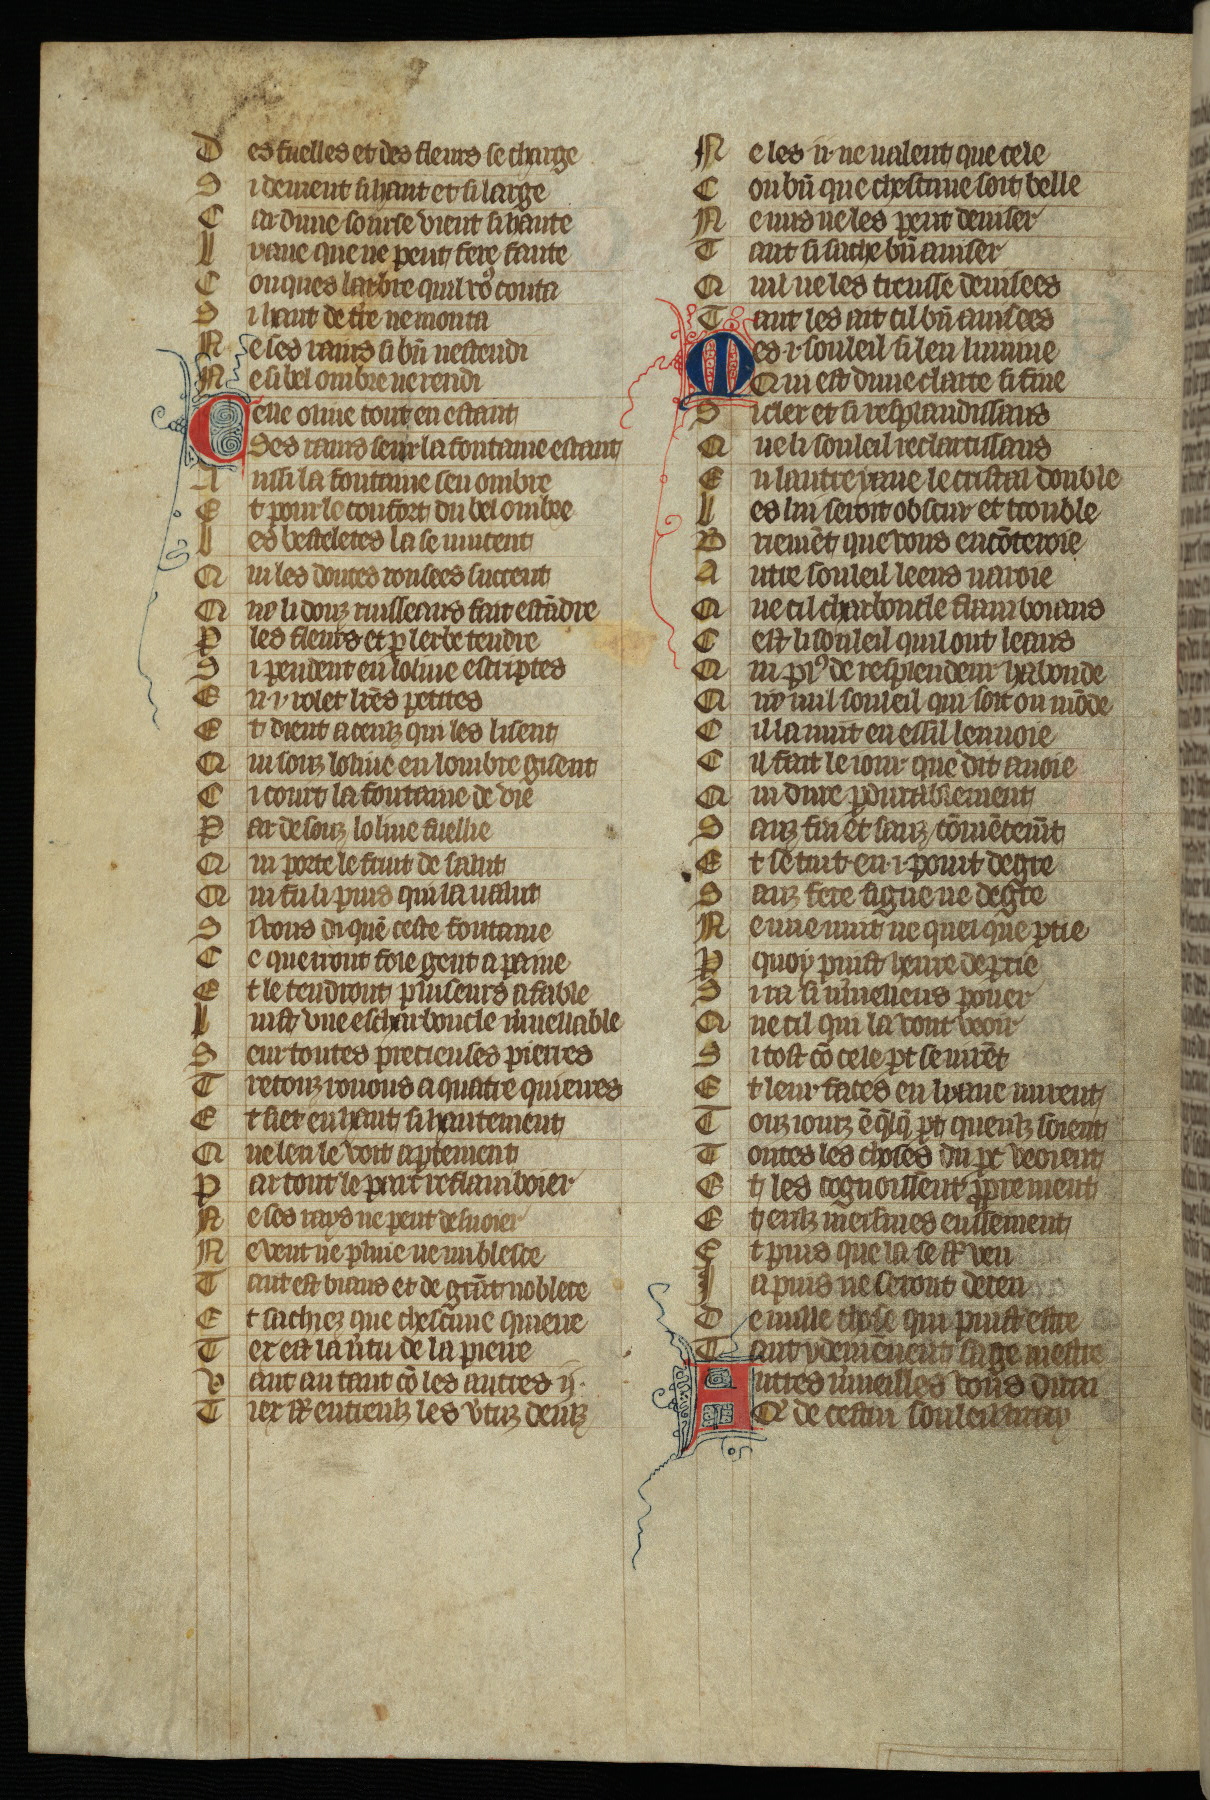 Des fuelles et des fleurs se charge
Si deuient si haut et si large
Car dune sourse vient si haute
Iyaue que ne peut fere faute
Conques larbre quil rō conta
Si haut de t̄re ne monta
Ne ses rains si bn̄ nestendi
Ne si bel ombre ne rendi
Ceste oliue tout en estant
Ses rains seur la fontaine estant
Ainsi la fontaine seu ombre
Et pour le confort du bel ombre
Les besteletes la se mucent
Qui les douces rousees succent
Que li douz ruisseaus fait estādre
P les fleurs et p lerbe tendre
Si pendent en loliue escriptes
En .i. rolet lr̄es petites
Et dient a ceulz qui les lisent
Qui souz loliue en lombre gisent
Ci court la fontaine de vie
Par desouz loliue fuellie
Qui porte le fruit de salut
Qui fu li pins qui la ualut
Si vous di quē ceste fontaine
Ce que iront fole gent a paine
Et le tendront pluiseurs a fable
Luist vne escharboucle m̄ueillable
Seur toutes precieuses pierres
Tretouz rouons a quatre quierres
Et siet en haut si hautement
Que len le voit aptement
Par tout le parc reflamboier
Ne ses rays ne peut desuoier
Ne vent ne pluie ne nublesce
Tant est biaus et de grāt noblece
Et sachiez que chescune quierre
Tex est la u̇tu de la pierre
Vaut autant cō les autres ij.
Tiex st̄ entreulz les v̇tuz deulz
Ne les ii. ne ualent que cele
Con bn̄ que chescune soit belle
Ne nus ne les peut deuiser
Tant si sache bn̄ auiser
Quil ne les treuisse deuisees
Tant les ait cil bn̄ auisees
Mes .i. souleil si len lumine
Qui est dune clarte si fine
Si cler et si resplandissans
Que li souleil reclarcissans
En lautre yaue le cristal double
Les lui seroit obscur et trouble
Briemēt que vous encōteroie
Autre souleil leens naroie
Que cil charboucle flamboians
Cest li souleil quil ont leens
Qui pl9 de resplendeur habonde
Que nul souleil qui soit ou mōde
Cil la nuit en essil lennoie
Cil fait le iour que dit auoie
Qui dure pdurablement
Sanz fin et sanz cōmēcem̄t
Et se tient en .i. point degre
Sanz fere signe ne degre
Ne une nuit ne quelque ptie
P quoy puist heure deptie
Si ra si m̄ueilleus pouer
Que cil qui la vont veoir
Si tost cō cele pt se uirēt
Et leur faces en lyaue uirent
Touz iourz ē q̄lq̄ pt queulz soient
Toutes les choses du pc veoient
Et les cognoissent ppprement
Et eulz meismes ensement
Et puis que la se st̄ veu
Ia puis ne seront deceu
De nulle chose qui puist estre
Tant y deuiēnent sage mestre
Autres m̄ueilles vous dirai
Q̄ de cestui souleil li ray